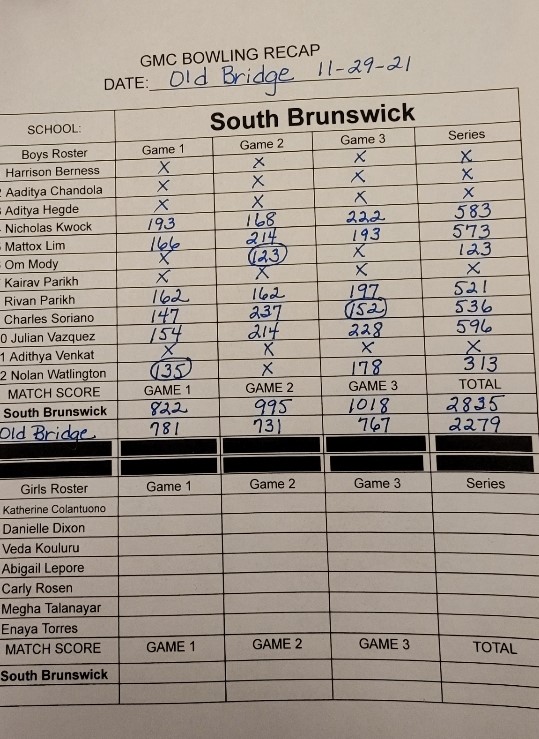 GMC BOWLING RECAP
DATE: Old Bridge 11-29-21
SCHOOL: South Brunswick
Boys Roster Game 1 Game 2 Game 3 Series
Harrison Berness X X X X
Aaditya Chandola X X X X
Aditya Hegde X X X X
Nicholas Kwock 193 168 222 583
Mattox Lim 166 214 193 573
Om Mody X 123 X 123
Kairav Parikh X X X X
Rivan Parikh 162 162 197 521
Charles Soriano 147 237 152 536
0 Julian Vazquez 154 214 228 596
1 Adithya Venkat X X X X
2 Nolan Watlington 135 X 178 313
MATCH SCORE GAME 1 GAME 2 GAME 3 TOTAL
South Brunswick 822 995 1018 2835
Old Bridge 781 731 767 2279
Girls Roster Game 1 Game 2 Game 3 Series
Katherine Colantuono
Danielle Dixon
Veda Kouluru
Abigail Lepore
Carly Rosen
Megha Talanayar
Enaya Torres
MATCH SCORE GAME 1 GAME 2 GAME 3 TOTAL
South Brunswick